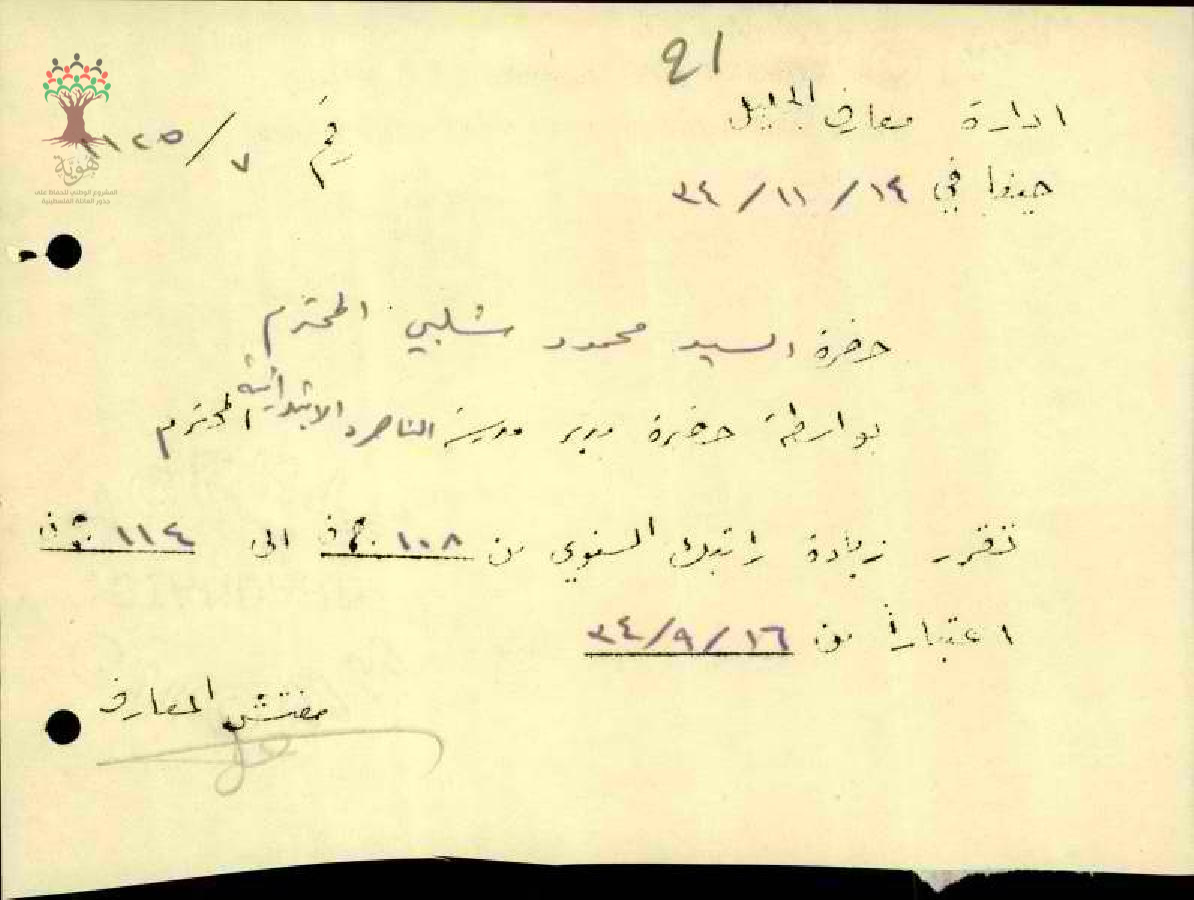 21
ادارة معارف الجليل
رقم ٧/١١٢٥
حيفا في ١٤/١١/٣٤
حضرة السيد محمود شلبي المحترم
بواسطة حضرة مدير مدرسة الناصرة الابتدائية المحترم
تقرر زيادة راتبك السنوي من ١٠٨ الى ١١٤
اعتباراً من ١٦/٩/٣٤
مفتش المعارف
هُوِيَّة
المشروع الوطني للحفاظ على
جذور العائلة الفلسطينية